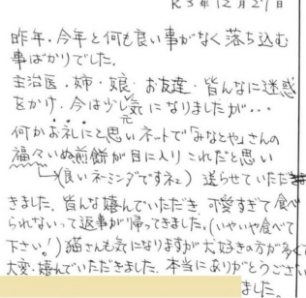 R3年12月27日
昨年、今年と何も良い事がなく落ち込む
事ばかりでした。
主治医、姉、娘、お友達、皆んなに迷惑
をかけ、今は少し元気になりましたが…
何かお礼にと思いネットで「みなとや」さんの
福々いぬ煎餅が目に入りこれだと思い
(良いネーミングですネ) 送らせていただ
きました。皆んな嬉んでいただき 可愛すぎて食べ
られないって返事が帰ってきました。(いやいや食べて
下さい!) 猫さんも気になりますが 犬好きの方が多くて
大変、嬉んでいただきました。本当にありがとうござい
ました。